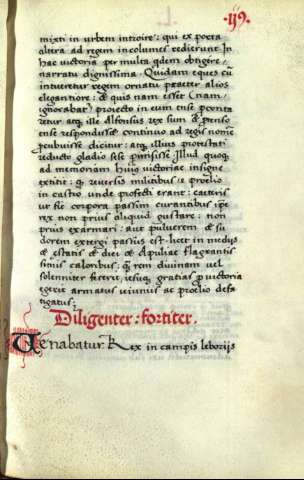 119.
mixti in urbem introire: qui ex porta
altera ad regem incolumes redierunt In
hac victoria per multa qdem obtigere
narratu dignissima. Quidam eques cũ
intueretur regem ornatu praeter alios
elegantiore: & quis nam esset (nam
ignorabat) proiecto in eum ense percũta
retur atq ille Alfonsus rex sum & prenso
ense respondisset continuo ad regis nomẽ
procubuisse dicitur: atq illius protestati
reducto gladio sese permisisse Illud quoq
ad memoriam huius victoriae insigne
extitit: q reversis militibus e proelio
in castra unde profecti erant: caeteris
ut fit corpora passim curantibus ipe
rex non prius aliquid gustare: non
prius exarmari: aut pulverem & su
dorem extergi passus est licet in medijs
& estatis & diei & Apuliae flagrantis
simis caloribus q rem divinam vel
solenniter fecerit, iesuq gratias p victoria
egerit armatus ieiunus ac proelio defa
tigatus;
Diligenter: fortiter.
Venabatur Rex in campis leborijs